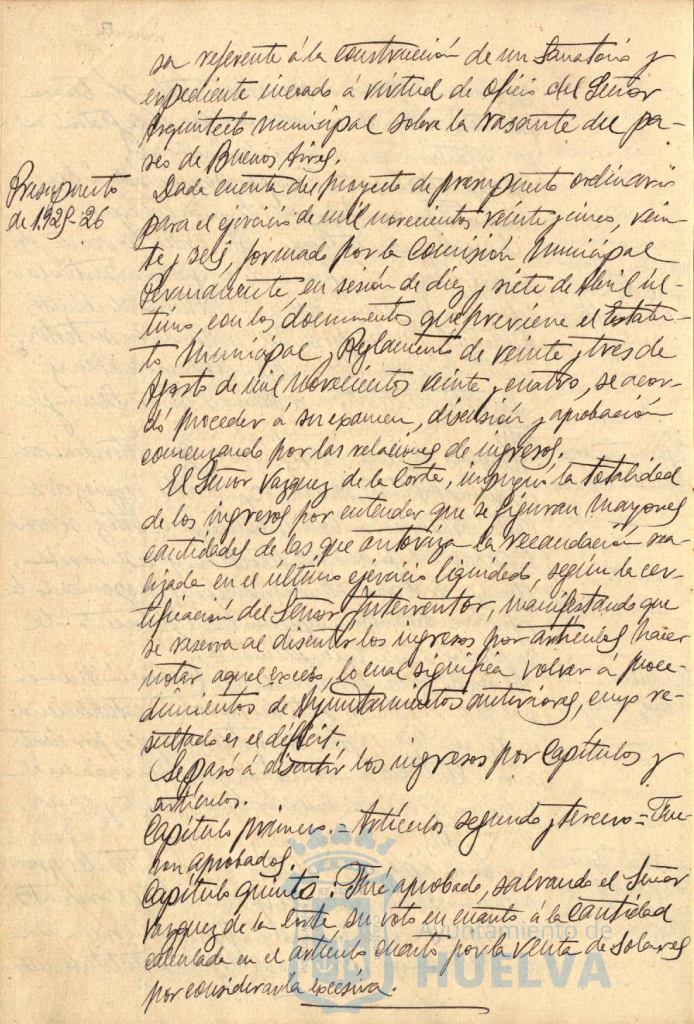 sa referente á la construcción de un Sanatorio y
expediente incoado á virtud de oficio del Señor
Arquitecto Municipal sobre la rasante del pa-
seo de Buenos Aires.
Presupuesto
de 1.925-26
Dada cuenta del proyecto de presupuesto ordinario
para el ejercicio de mil novecientos veinte y cinco, vein-
te y seis, formado por la Comisión Municipal
Permanente, en sesión de diez y siete de Abril úl-
timo, con los documentos que previene el Estatu-
to Municipal y Reglamento de veinte y tres de
Agosto de mil novecientos veinte y cuatro, se acor-
dó proceder á su examen, discusión y aprobación
comenzando por las relaciones de ingresos.
El Señor Vazquez de la Corte, impugnó la totalidad
de los ingresos por entender que se figuran mayores
cantidades de las que autoriza la recaudación rea-
lizada en el último ejercicio liquidado, según la cer-
tificación del Señor Interventor, manifestando que
se reserva al discutir los ingresos por artículos hacer
notar aquel exceso, lo cual significa volver á proce-
dimientos de Ayuntamientos anteriores, cuyo re-
sultado es el déficit.
Se pasó á discutir los ingresos por Capítulos y
artículos.
Capítulo primero. = Artículos segundo y tercero = Fue-
ron aprobados.
Capítulo quinto. Fue aprobado, salvando el Señor
Vazquez de la Corte, su voto en cuanto á la cantidad
calculada en el artículo cuarto por la venta de Solares
por considerarla excesiva.
Ayuntamiento de
HUELVA